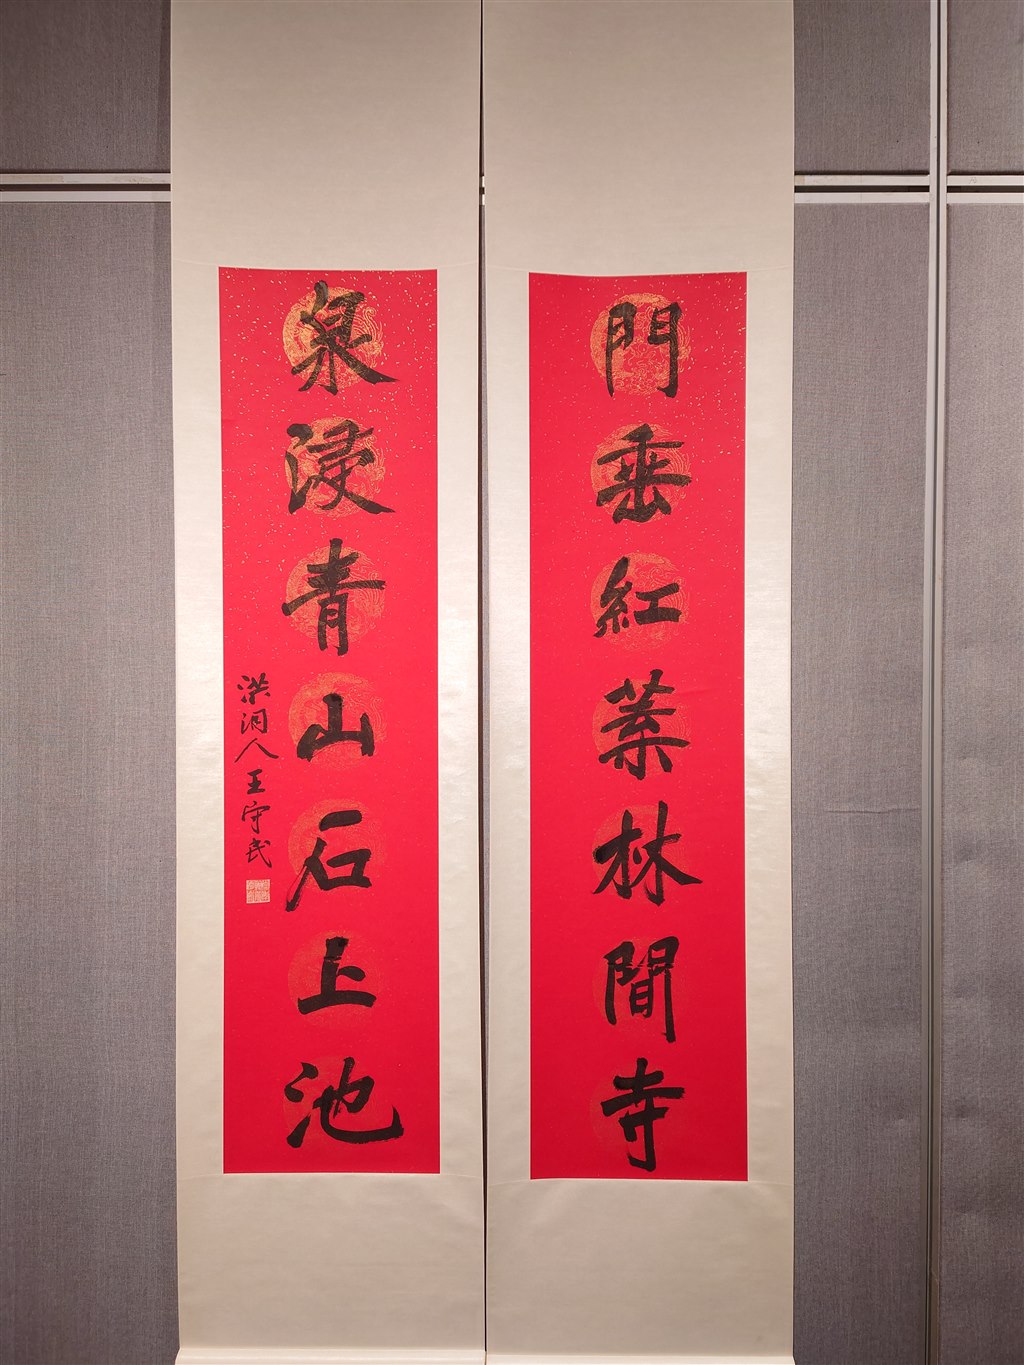 門垂紅葉林間寺
泉浸青山石上池
洪洞人王守民